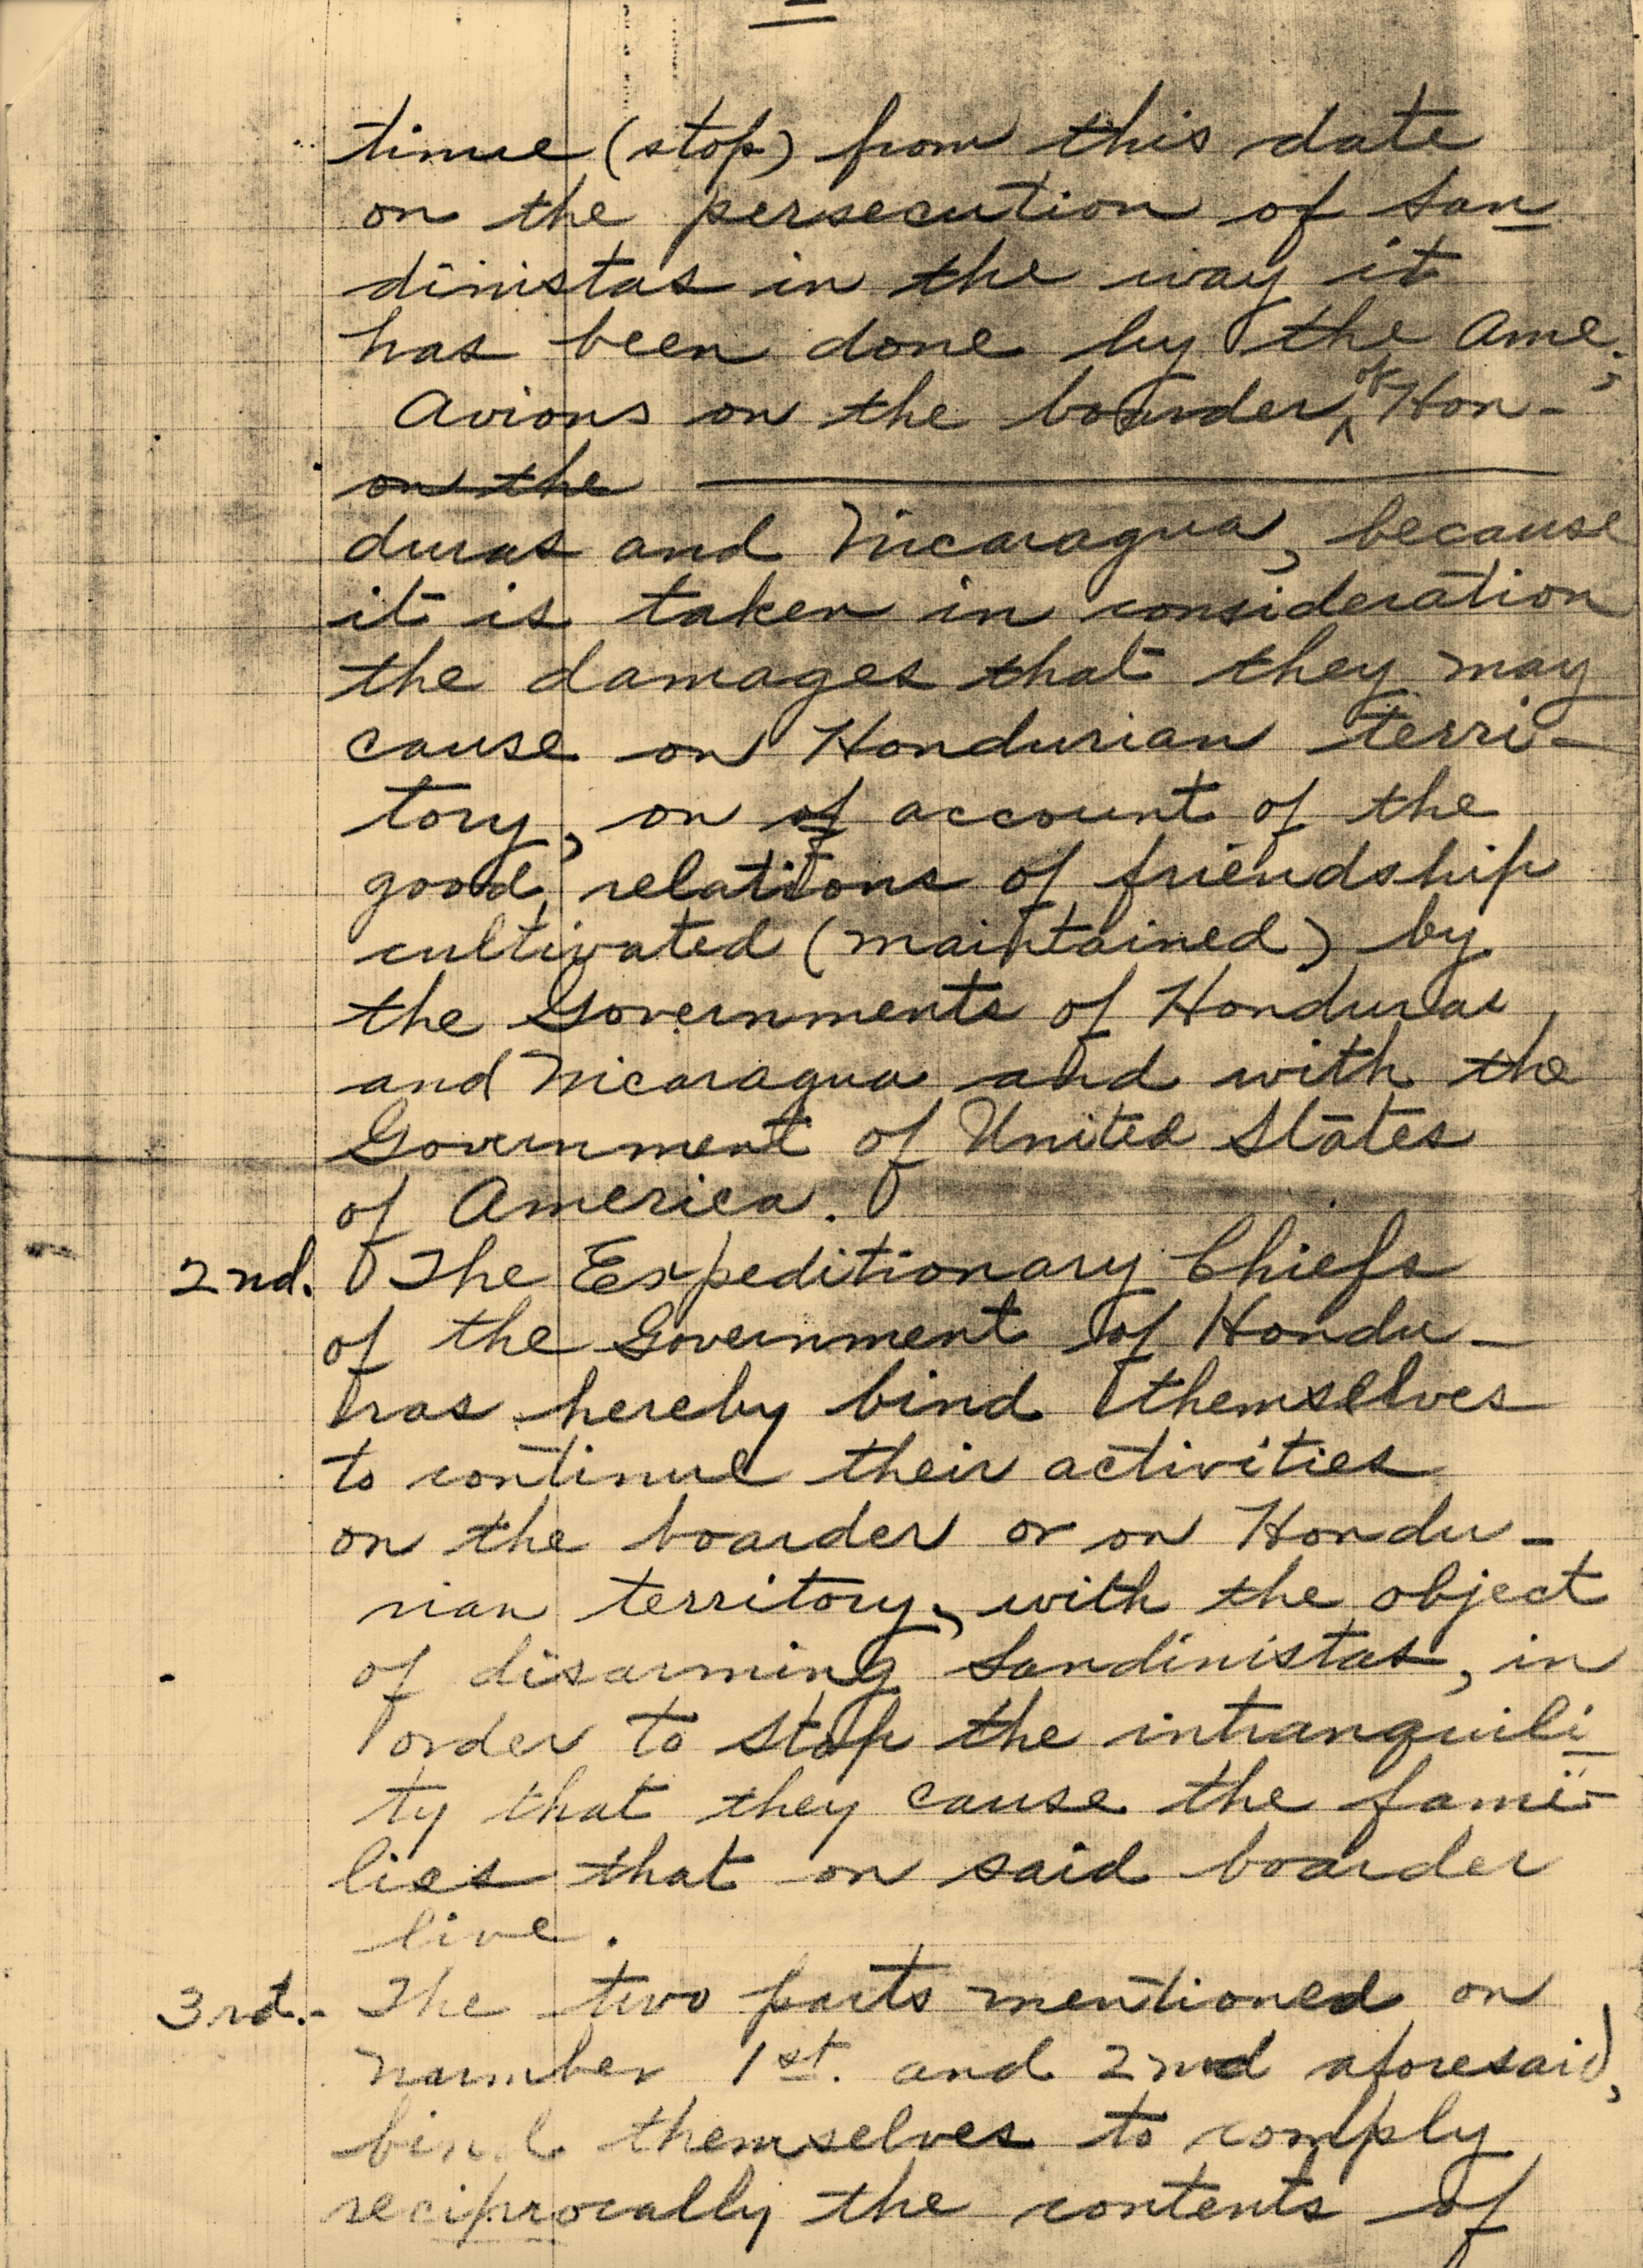 tinue (stop) from this date
on the persecution of San
dinistas in the way it
has been done by the Ame,
Avions on the boarder of Hon-
on the
duras and Nicaragua, because
it is taken in consideration
the damages that they may
cause on Hondurian terri-
tory, on of account of the
good relations of friendship
cultivated (maintained) by
the Governments of Honduras
and Nicaragua and with the
Government of United States
of America.
2nd. The Expeditionary Chiefs
of the Government of Hondu-
ras hereby bind themselves
to continue their activities
on the boarder or on Hondu-
rian territory, with the object
of disarming Sandinistas, in
order to stop the intranquili
ty that they cause the fami-
lies that on said boarder
live.
3rd.- The two parts mentioned on
number 1st. and 2nd aforesaid,
bind themselves to comply
reciprocally the contents of